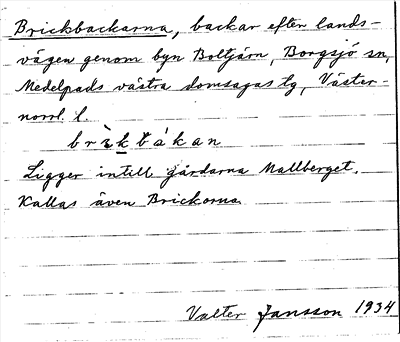 Brickbackarna, backar efter lands-
vägen genom byn Boltjärn, Borgsjö sn,
Medelpads västra domsagas tg, Väster-
norrl. l.
brìkbákan
Ligger intill gårdarna Mallberget.
Kallas även Brickorna
Valter Jansson 1934